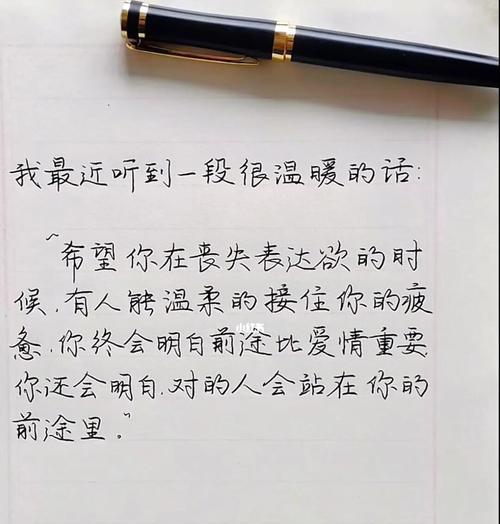 我最近听到一段很温暖的话:
“希望你在丧失表达欲的时
候,有人能温柔的接住你的疲
惫,你终会明白前途比爱情重要,
你还会明白,对的人会站在你的
前途里。”
小红书